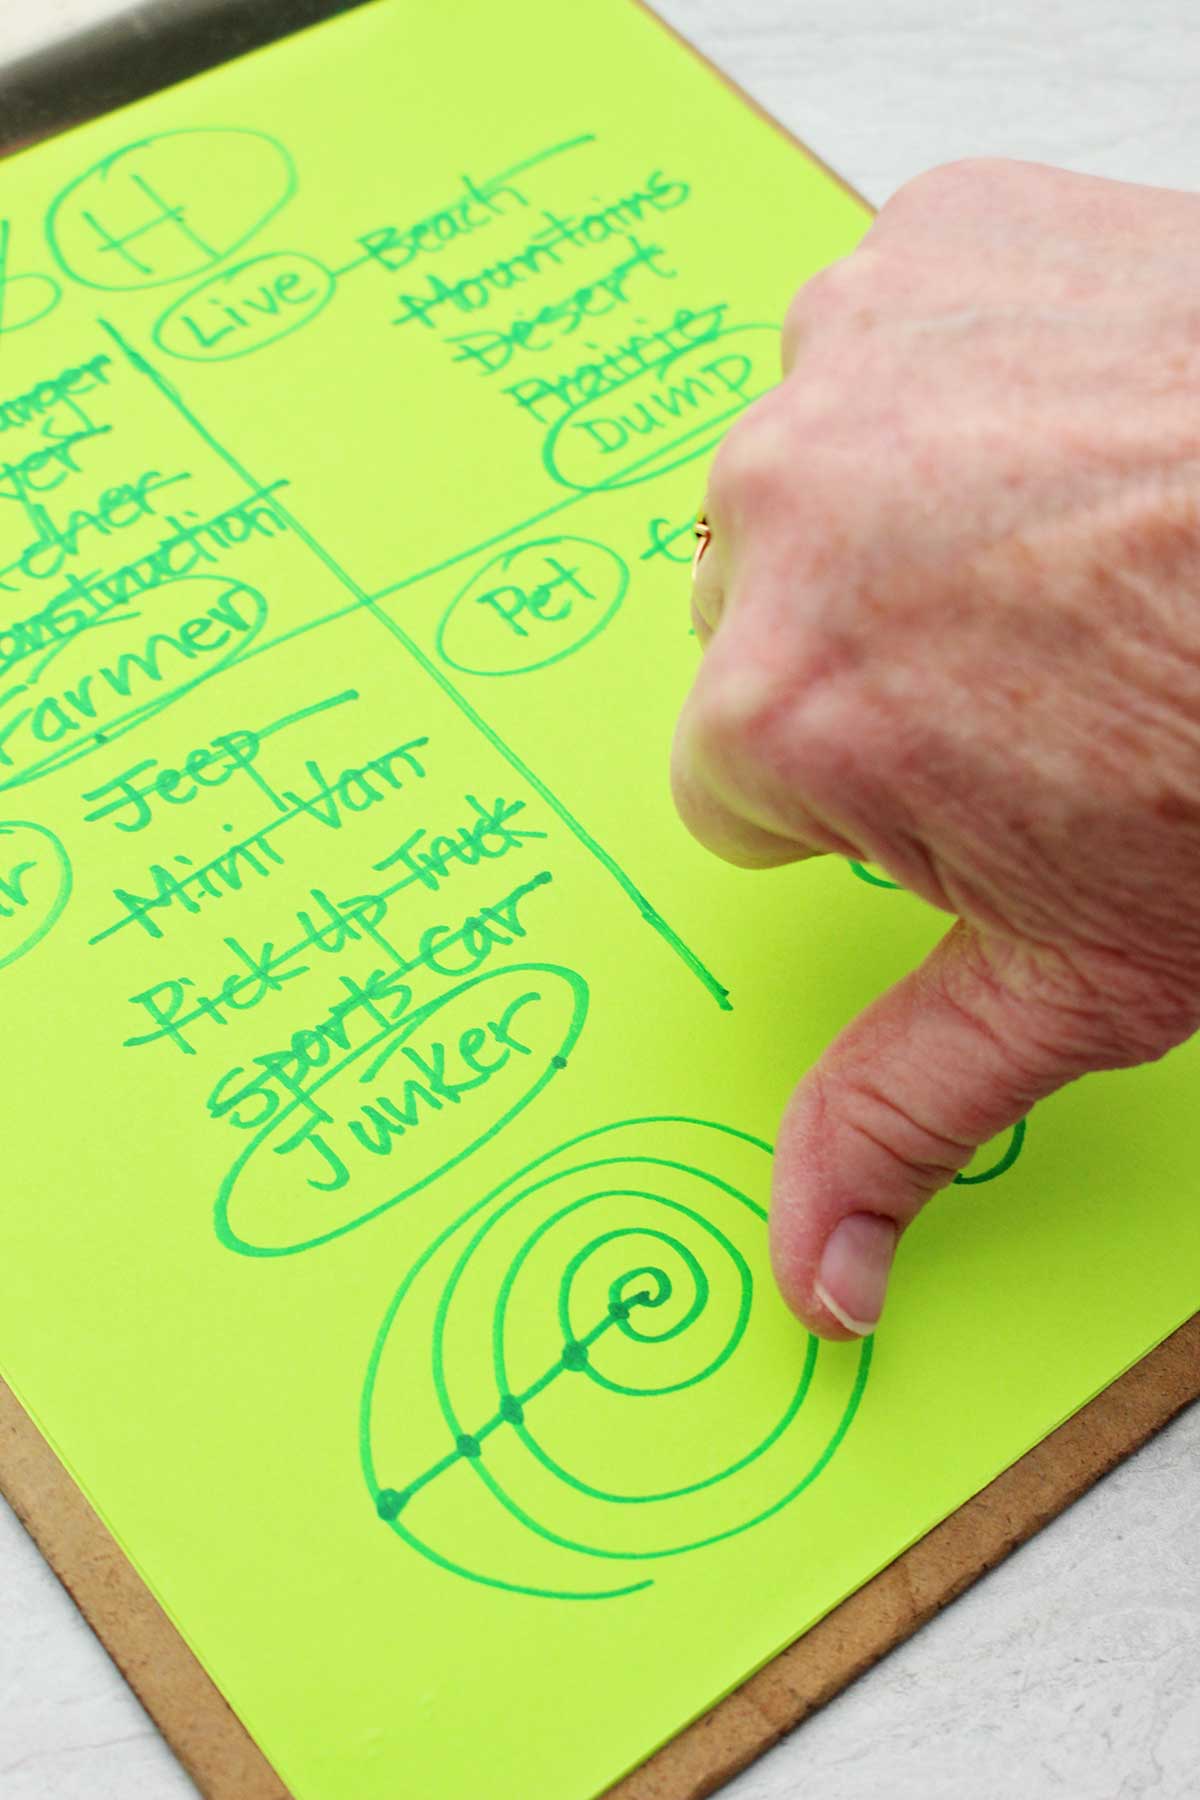 H
Live
Beach
Mountains
Desert
Prairie
Dump
anger
yer
cher
onstruction
Farmer
Pet
Jeep
Mini Van
Pick Up Truck
Sports Car
Junker